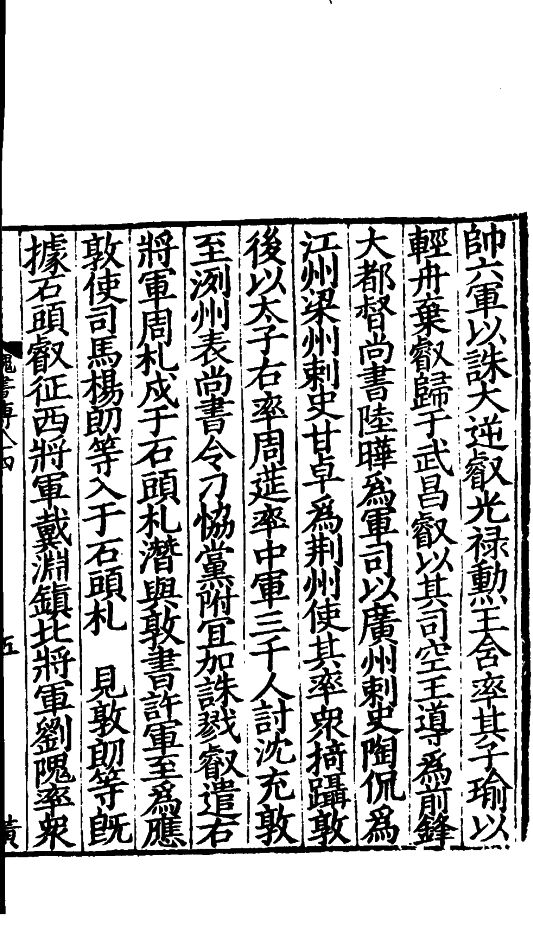 帥六軍以誅大逆叡光祿勳王含率其子瑜以
輕舟棄叡歸于武昌叡以其司空王導爲前鋒
大都督尚書陸曄爲軍司以廣州剌史陶侃爲
江州梁州剌史甘卓爲荆州使其率衆掎躡敦
後以太子右率周莚率中軍三千人討沈充敦
至洌州表尚書令刁恊黨附冝加誅戮叡遣右
將軍周札戍于石頭札潛與敦書許軍至爲應
敦使司馬楊朗等入于石頭札　見敦朗等旣
據石頭叡征西將軍戴淵鎮北將軍劉隗率衆
魏書傳八十四
五